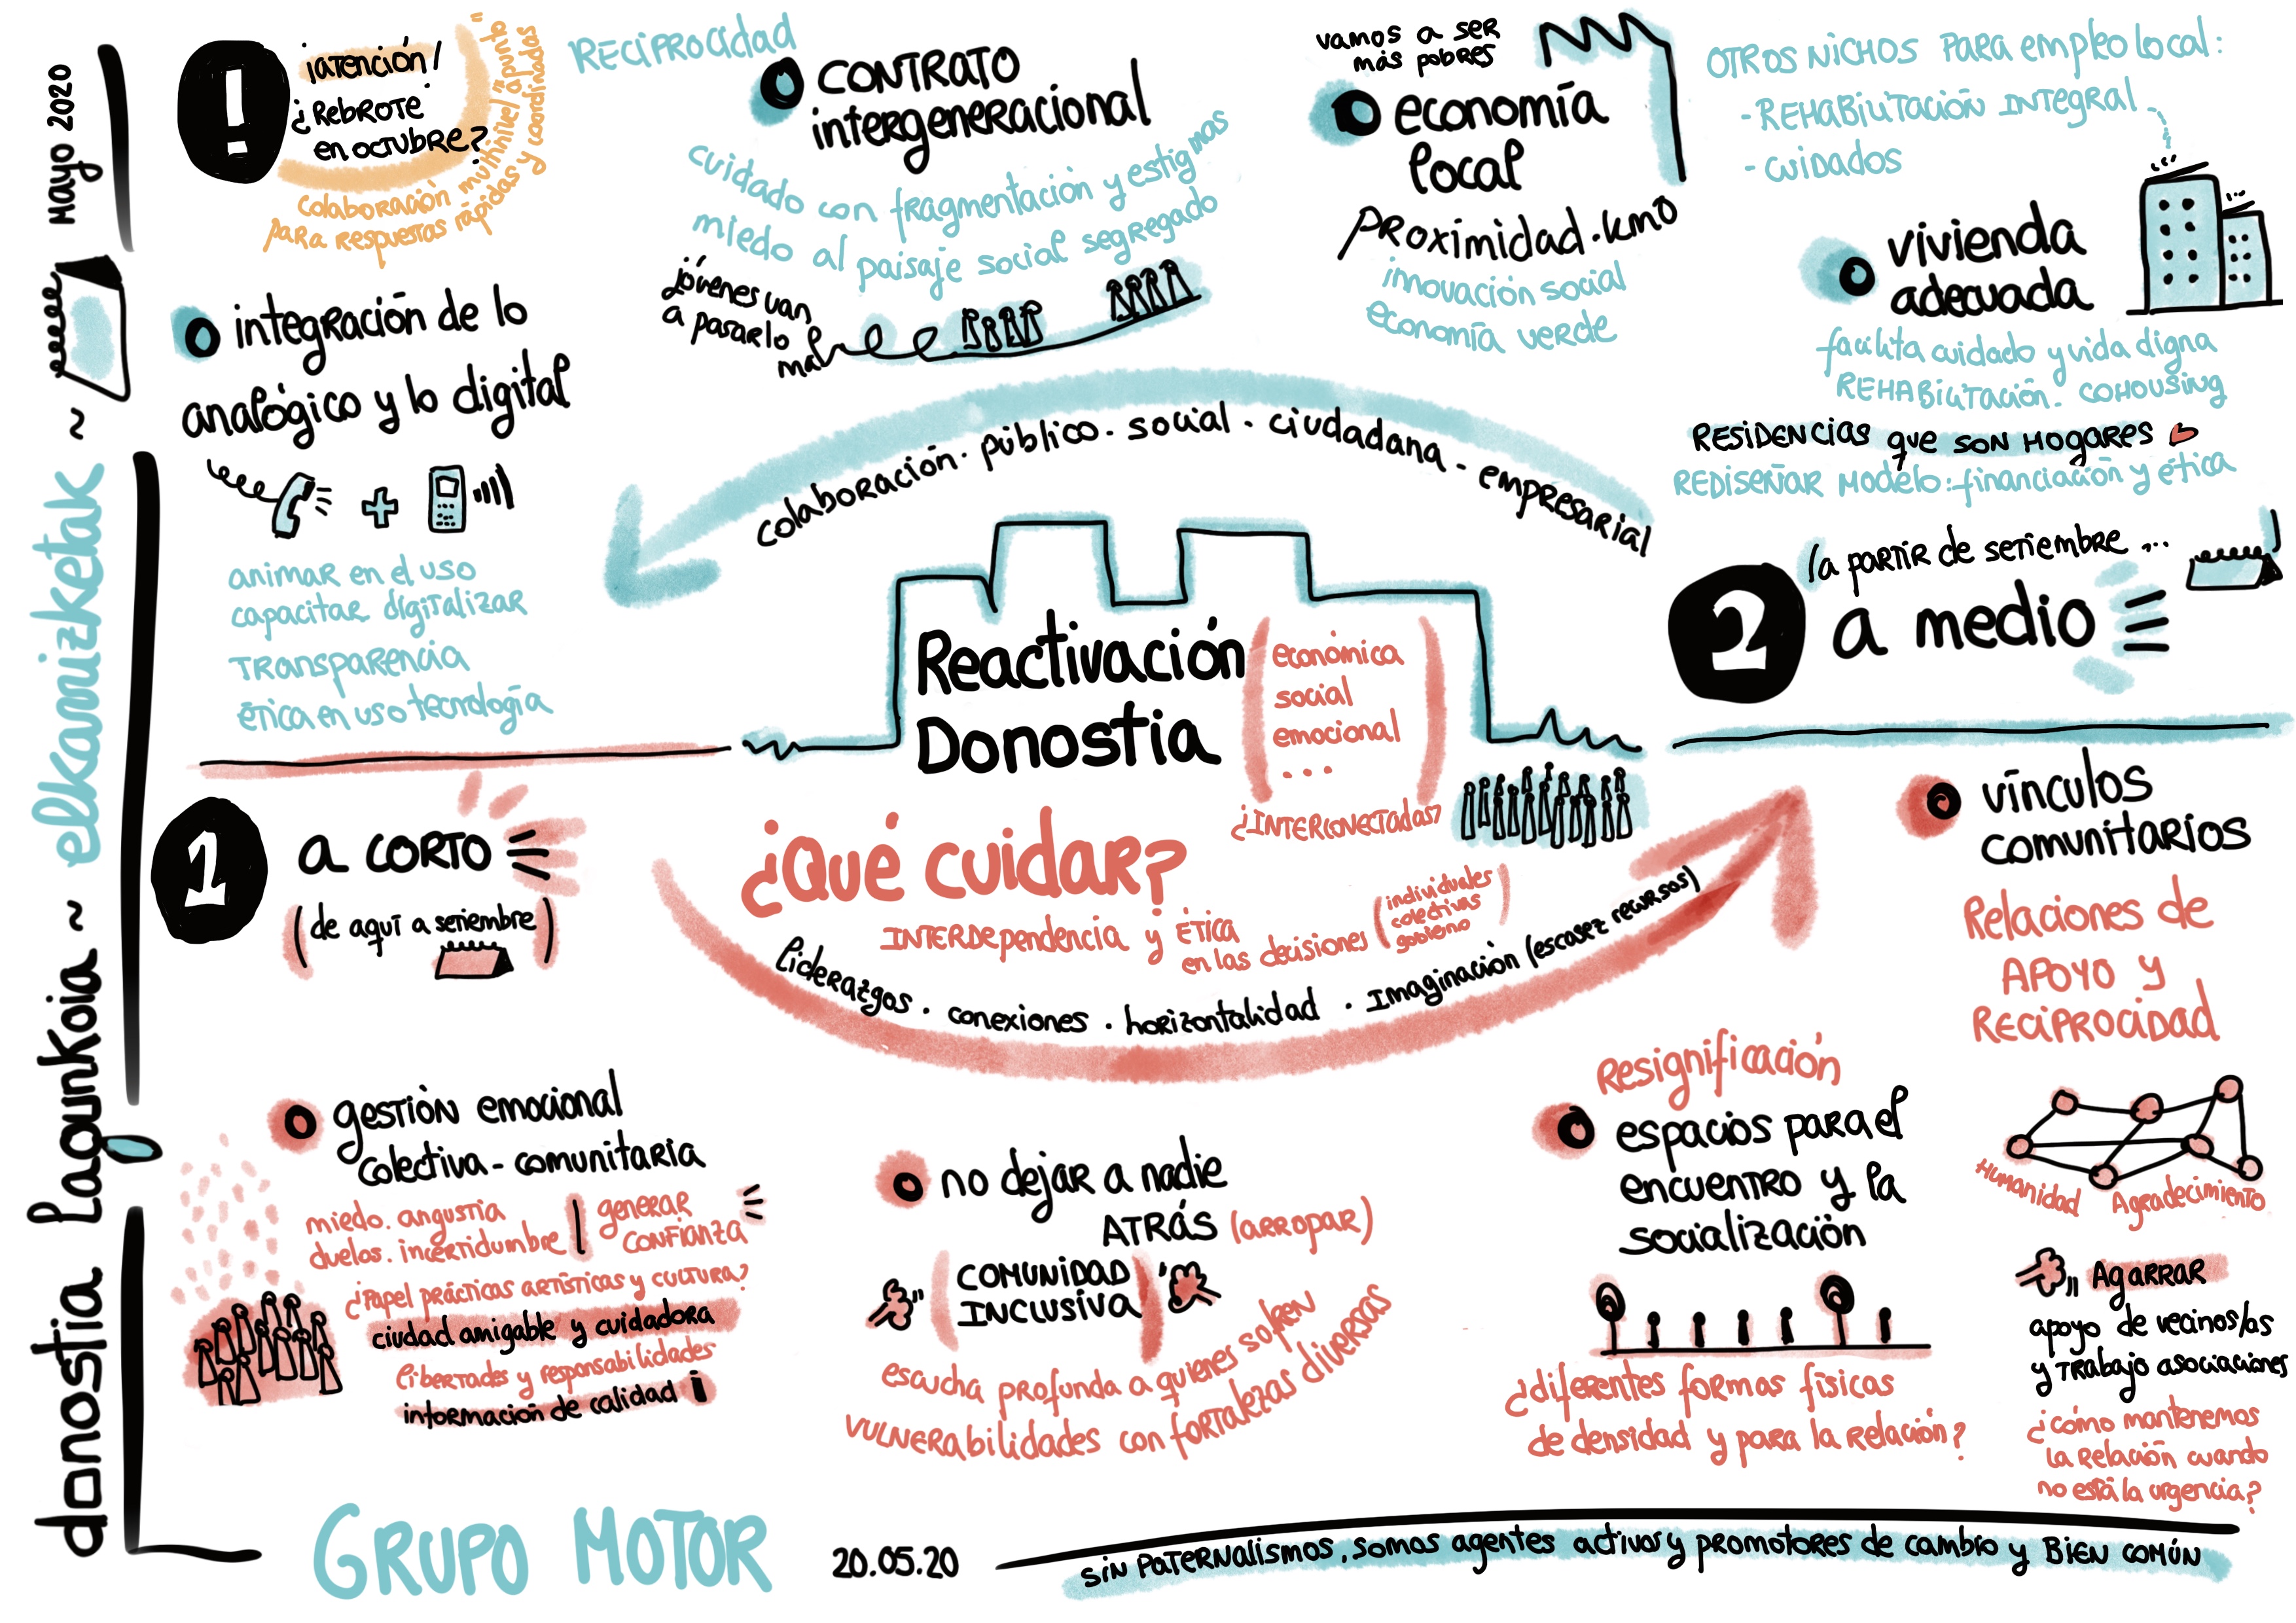 donostia lagunkoia ~ elkarrizketak ~ Mayo 2020
¡atención!
¿Rebrote
en octubre?
colaboración multinivel "a punto"
para respuestas rápidas y coordinadas
integración de lo
analógico y lo digital
animar en el uso
capacitar digitalizar
transparencia
ética en uso tecnología
Reciprocidad
contrato
intergeneracional
cuidado con fragmentación y estigmas
miedo al paisaje social segregado
jóvenes van
a pasarlo
mal
vamos a ser
más pobres
economía
local
proximidad. kmo
innovación social
economía verde
otros nichos para empleo local:
- Rehabilitación integral
- cuidados
vivienda
adecuada
facilita cuidado y vida digna
Rehabilitación. cohousing
Residencias que son hogares
Rediseñar modelo: financiación y ética
(a partir de setiembre ...
2 a medio
colaboración. público. social. ciudadana - empresarial
Reactivación
Donostia
(económica
social
emocional
...)
¿interconectadas?
¿Qué cuidar?
interdependencia y ética
en las decisiones
(individuales
colectivas
gobierno)
liderazgos. conexiones. horizontalidad. Imaginación (escasez recursos)
1 a corto
(de aquí a setiembre)
gestión emocional
colectiva - comunitaria
miedo. angustia
duelos. incertidumbre
generar
confianza
¿Papel prácticas artísticas y cultura?
ciudad amigable y cuidadora
libertades y responsabilidades
información de calidad i
no dejar a nadie
atrás (arropar)
(comunidad
inclusiva)
escucha profunda a quienes sofren
vulnerabilidades con fortalezas diversas
Resignificación
espacios para el
encuentro y la
socialización
¿diferentes formas físicas
de densidad y para la relación?
vínculos
comunitarios
Relaciones de
apoyo y
Reciprocidad
Humanidad
Agradecimiento
Agarrar
apoyo de vecinos/as
y trabajo asociaciones
¿cómo mantenemos
la relación cuando
no está la urgencia?
Grupo Motor
20.05.20
sin paternalismos, somos agentes activos y promotores de cambio y bien común